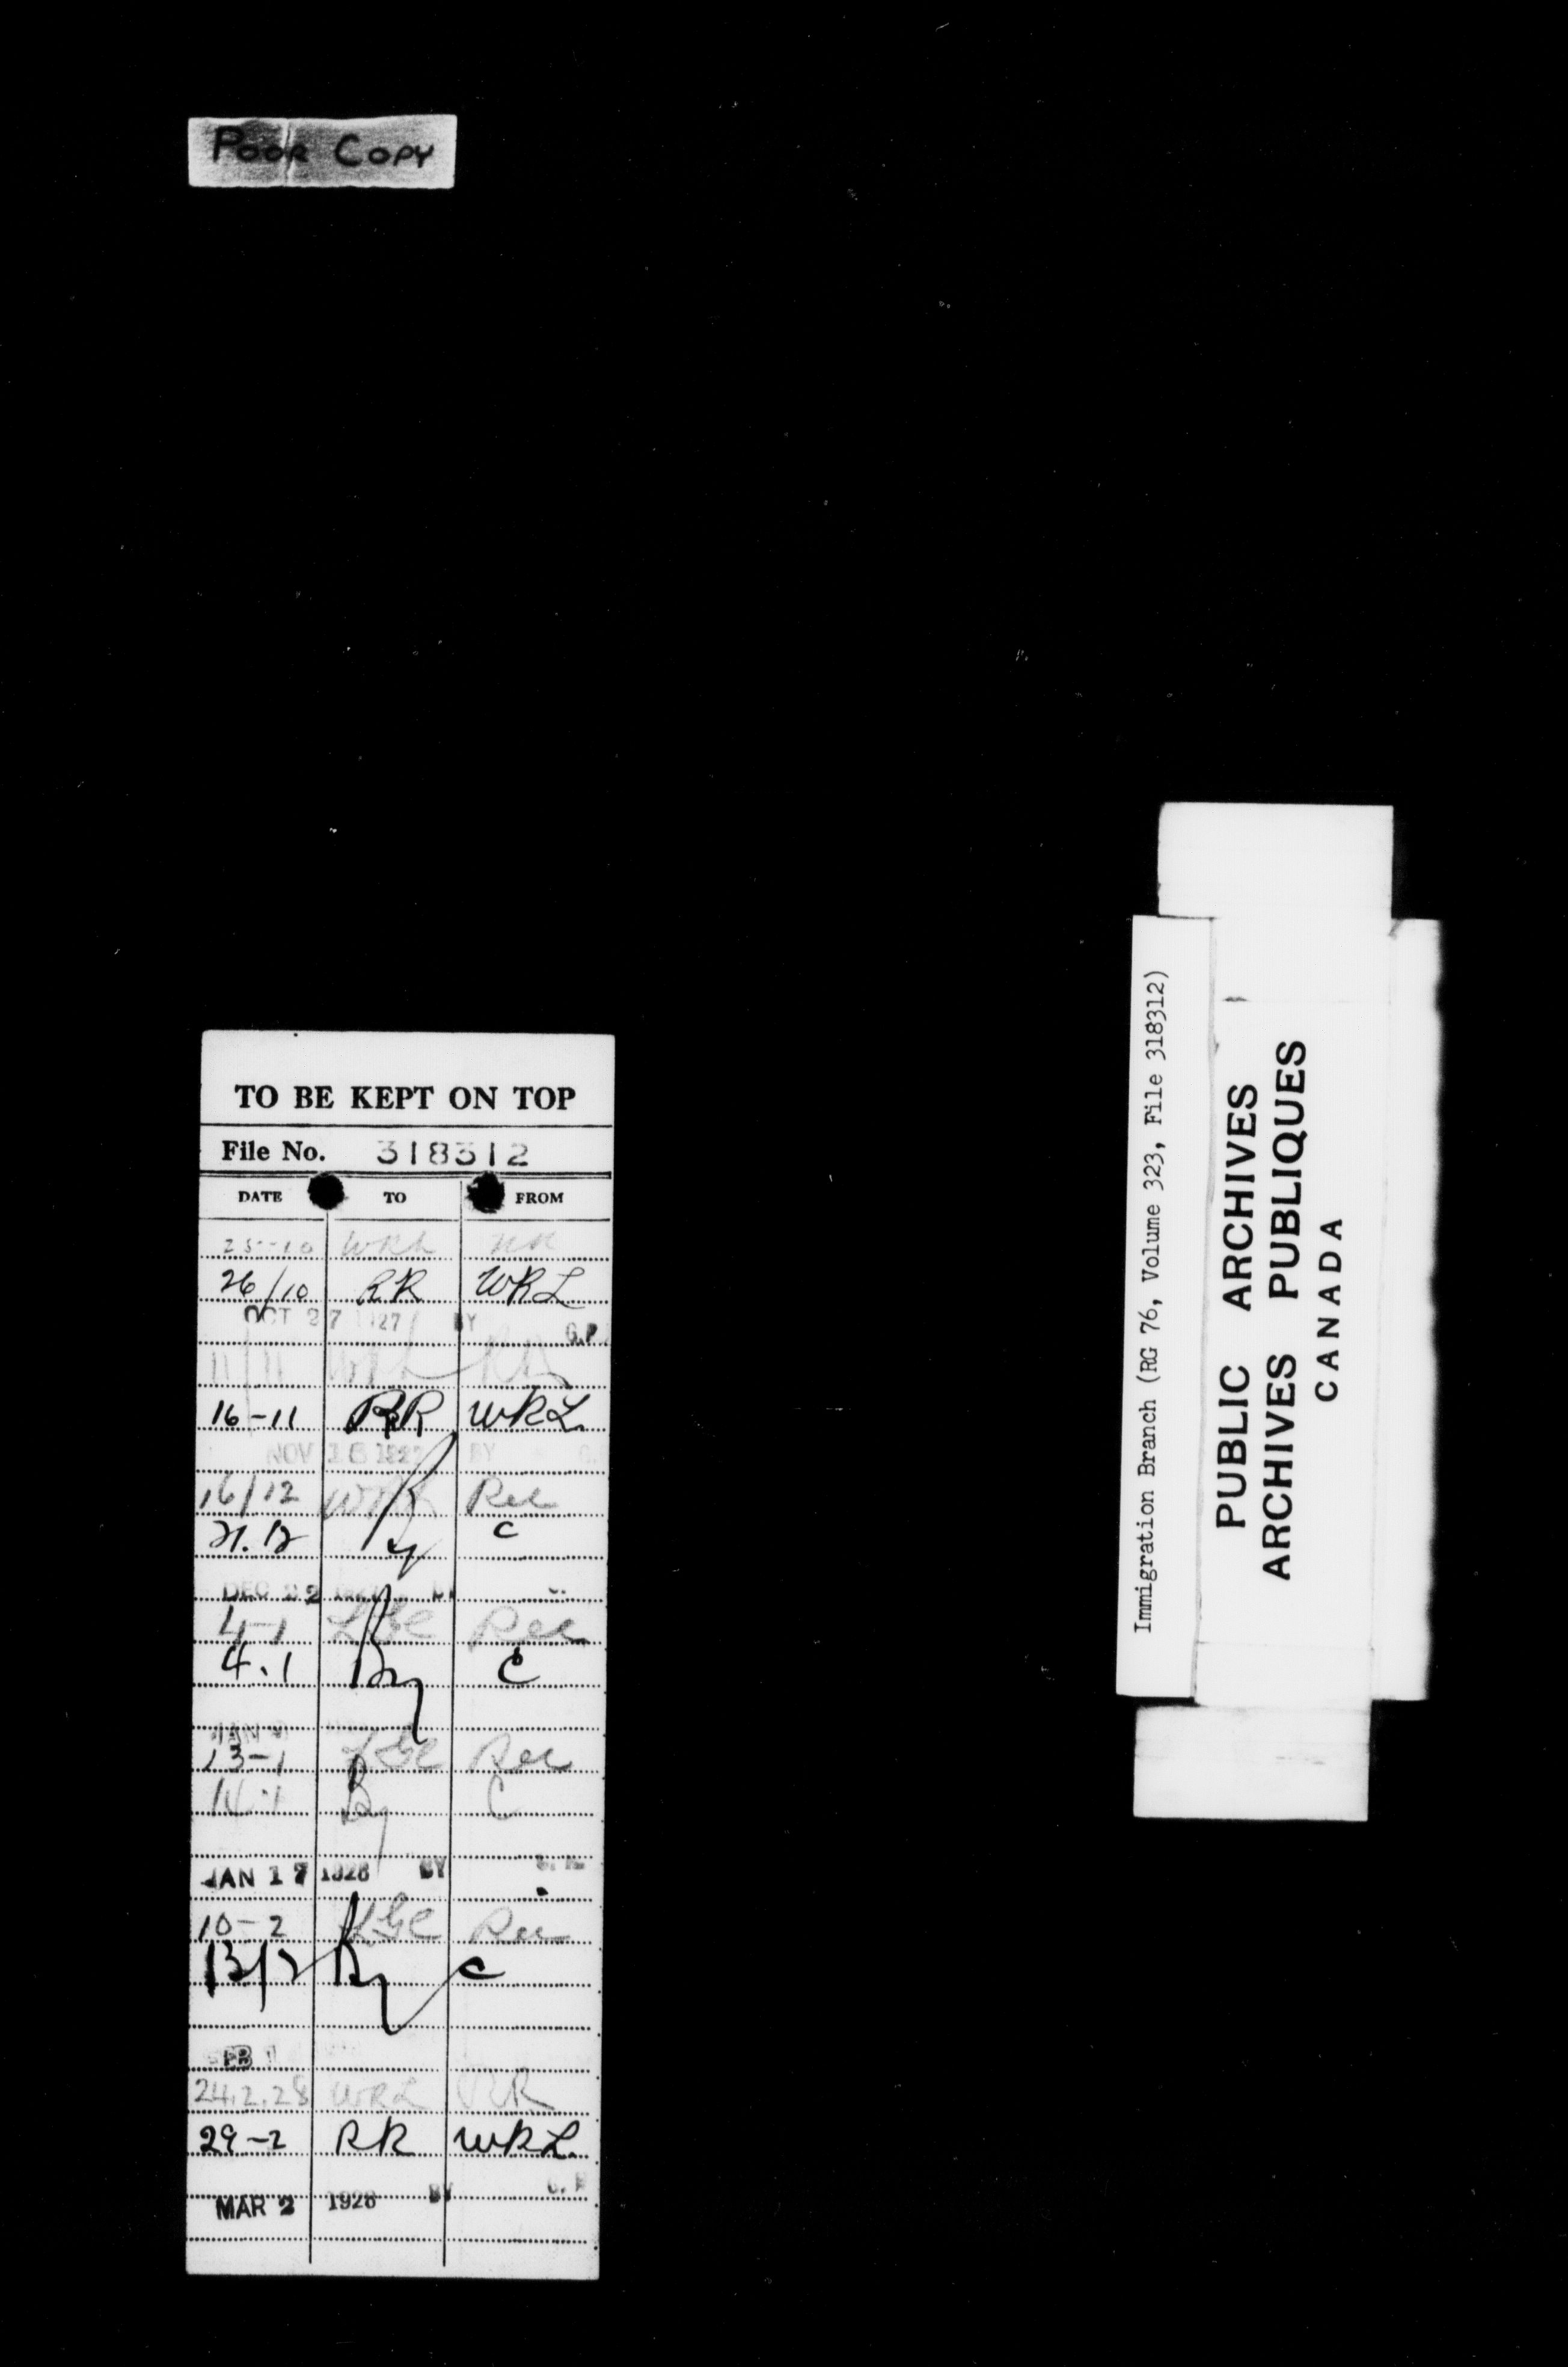 POOR COPY
TO BE KEPT ON TOP
File No. 318312
DATE TO FROM
25-10 WRL RR
26/10 RR WRL
OCT 27 1927 BY G.P.
11/11 WRL
16-11 RR WRL
NOV 16 BY
16/12 Rec
21.12 C
DEC 22
4-1 LGC Rec
4.1 By C
JAN
13-1 LGC Rec
14.1 By C
JAN 17 1928 BY
10-2 LGC Rec
13/2 By C
FEB
24.2.28 WRL RR
29-2 RR WRL
MAR 2 1928 BY
Immigration Branch (RG 76, Volume 323, File 318312)
PUBLIC ARCHIVES
ARCHIVES PUBLIQUES
CANADA